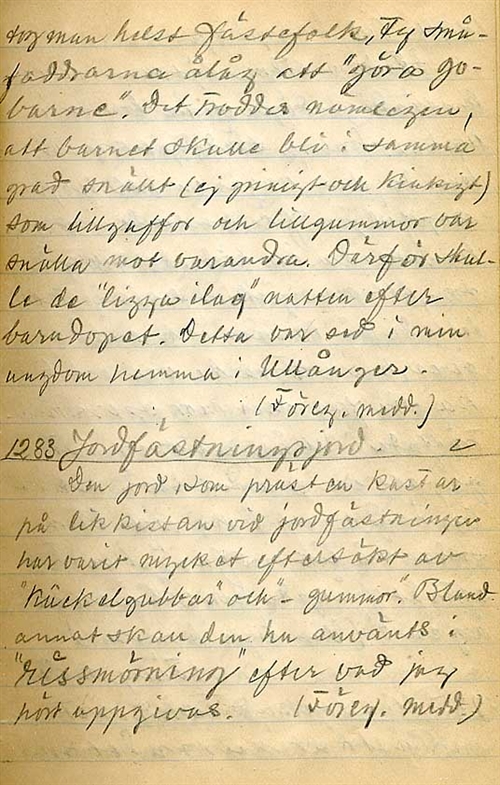 tog man helst fästefolk, Ty små-
faddrarna ålåg att "göra go-
barne". Det troddes nämligen,
att barnet skulle bli i samma
grad snällt (ej pinigt och kinkigt)
som lillgaffor och lillgummor var
snälla mot varandra. Därför skul-
le de "ligga ilag" natten efter
barndopet. Detta var sed i min
ungdom hemma i Ullånger.
(Föreg. medd.)
1283 Jordfästningsjord.
Den jord, som prästen kastar
på likkistan vid jordfästningen
har varit mycket eftersökt av
"kuckelgubbar" och "- gummor". Bland
annat skall den ha använts i
"russmörning" efter vad jag
hört uppgivas. (Föreg. medd.)